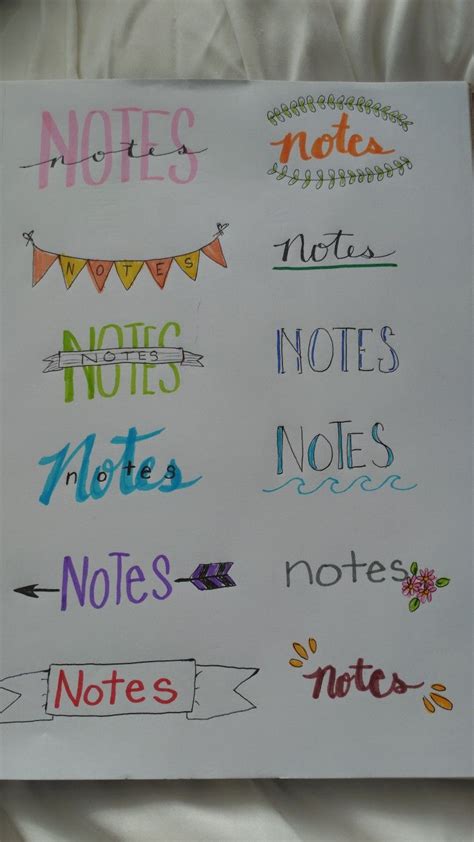 NOTES
notes
notes
NOTES
Notes
NOTES
NOTES
NOTES
Notes
notes
NOTES
NOTES
notes
Notes
notes